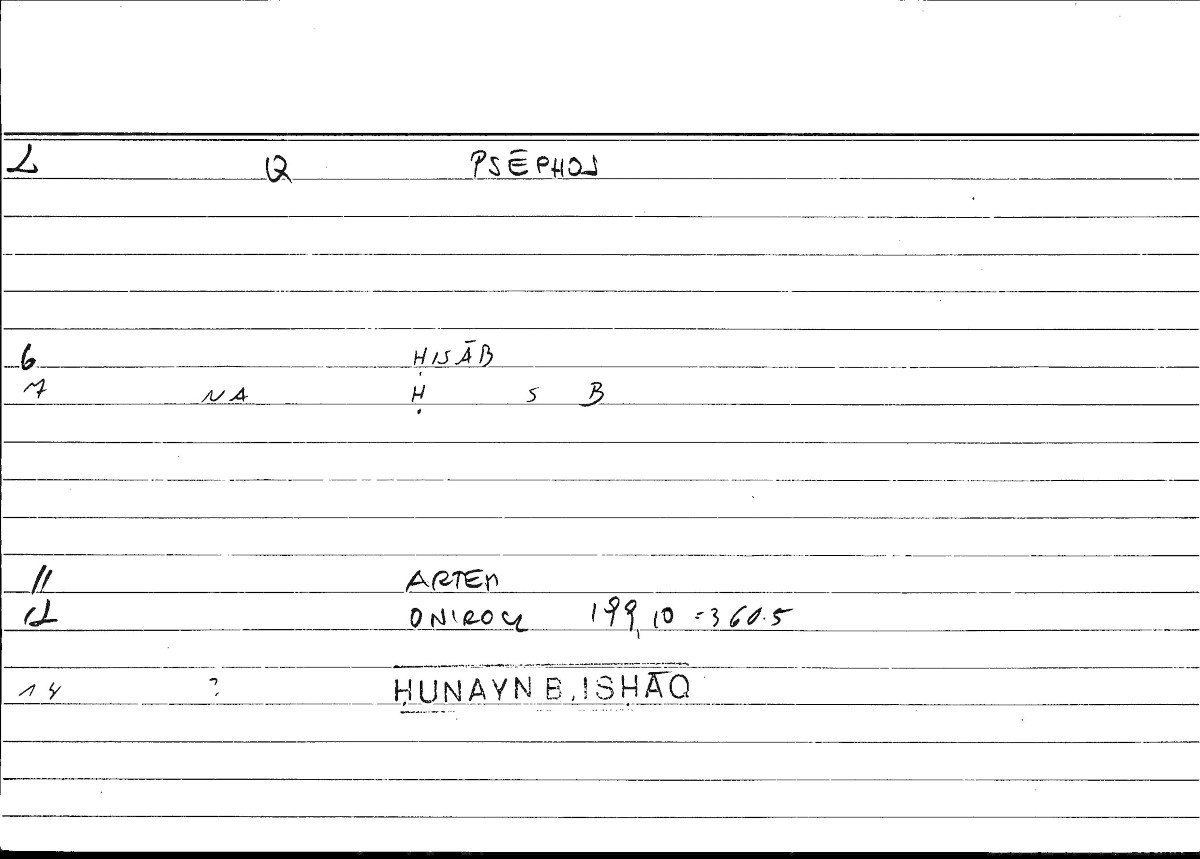 2 Q PSĒPHOS
6 ḤISĀB
7 NA Ḥ S B
11 ARTEM
12 ONIROCR 199,10 = 360.5
14 ? ḤUNAYN B. ISḤĀQ